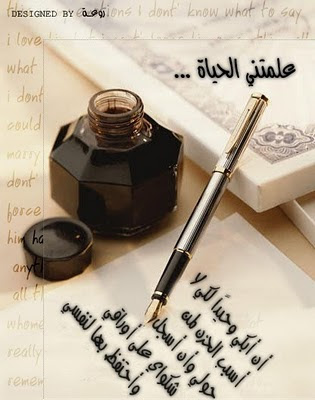 DESIGNED BY روعـة
I don't know what to say
i love
what
i dont
could
marry
dont'
force
him ha
all t
really
علمتني الحياة ...
أن أبكي وحيداً لكي لا
أسبب الحزن لمن
حولي وأن أسجل
شكواي على أوراقي
وأحتفظ بها لنفسي